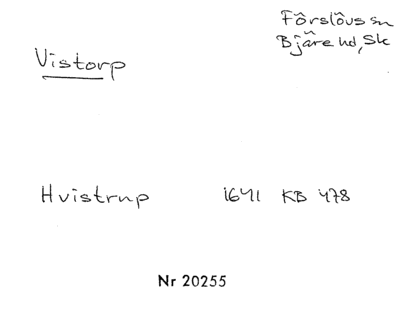 Förslövs sn
Bjäre hd, Sk
Vistorp
Hvistrup 1641 KB 478
Nr 20255